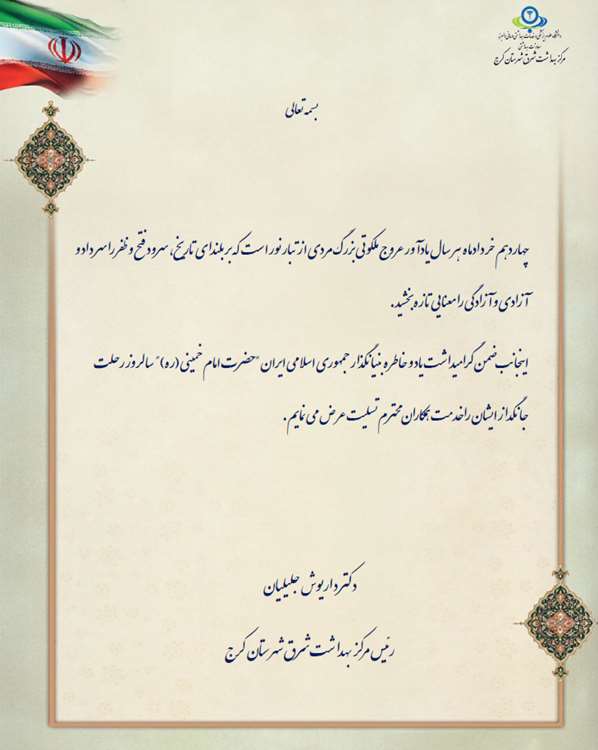 دانشگاه علوم پزشکی و خدمات بهداشتی درمانی البرز
معاونت بهداشتی
مرکز بهداشت شرق شهرستان کرج
بسمه تعالی
چهاردهم خردادماه هر سال یادآور عروج ملکوتی بزرگ مردی از تبار نور است که بر بلندای تاریخ، سرود فتح و ظفر را سر داد و
آزادی و آزادگی را معنایی تازه بخشید.
اینجانب ضمن گرامیداشت یاد و خاطره بنیانگذار جمهوری اسلامی ایران "حضرت امام خمینی (ره)" سالروز رحلت
جانگداز ایشان را خدمت همکاران محترم تسلیت عرض می نمایم .
دکتر داریوش جلیلیان
رئیس مرکز بهداشت شرق شهرستان کرج